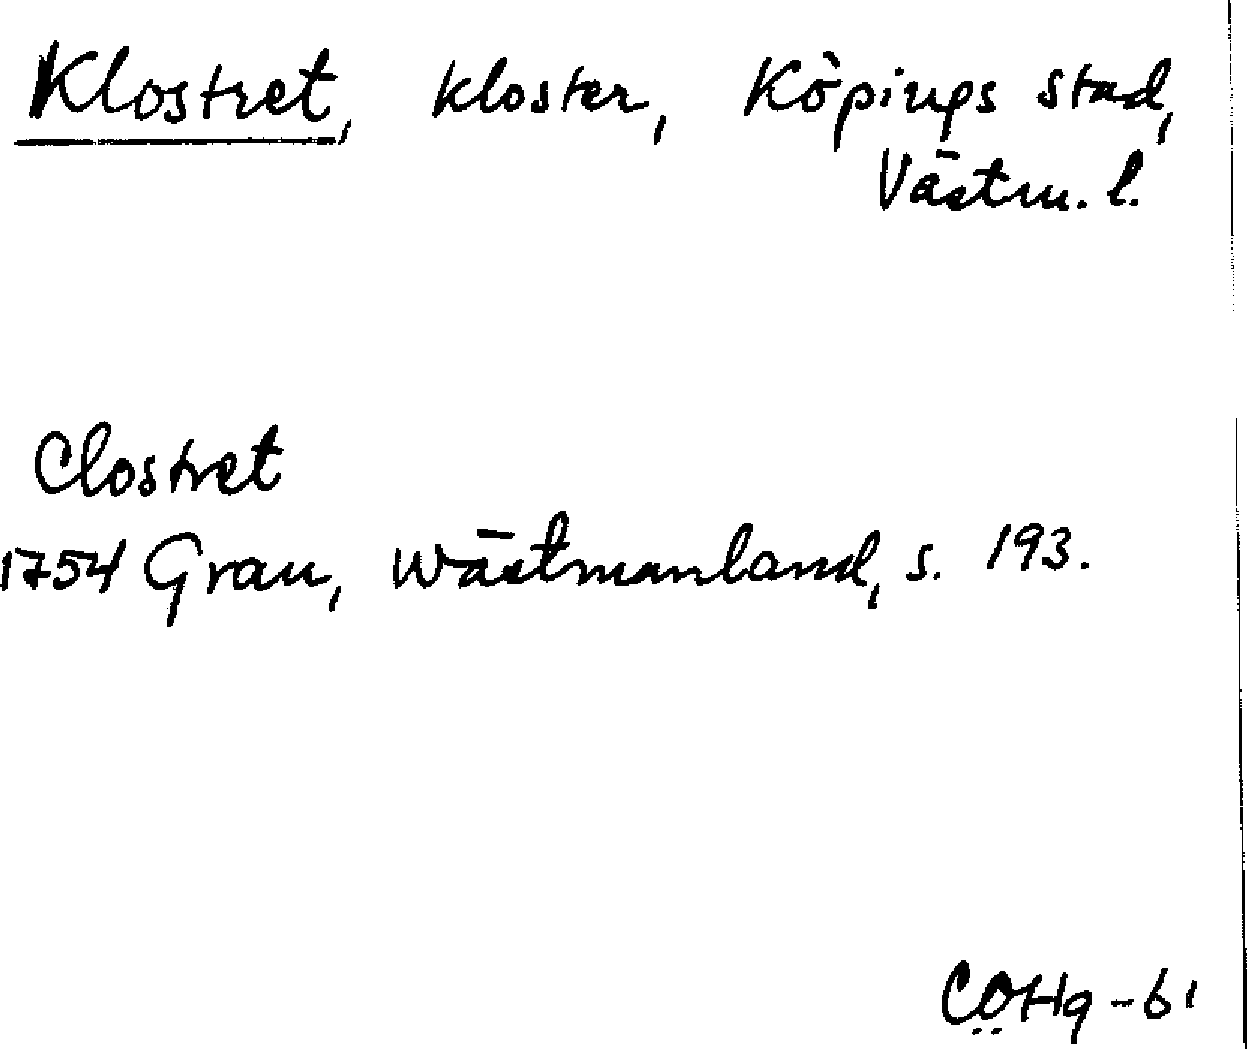 Klostret, kloster, Köpings stad,
Västm. l.
Clostret
1754 Grau, Wästmanland, s. 193.
COHg-61